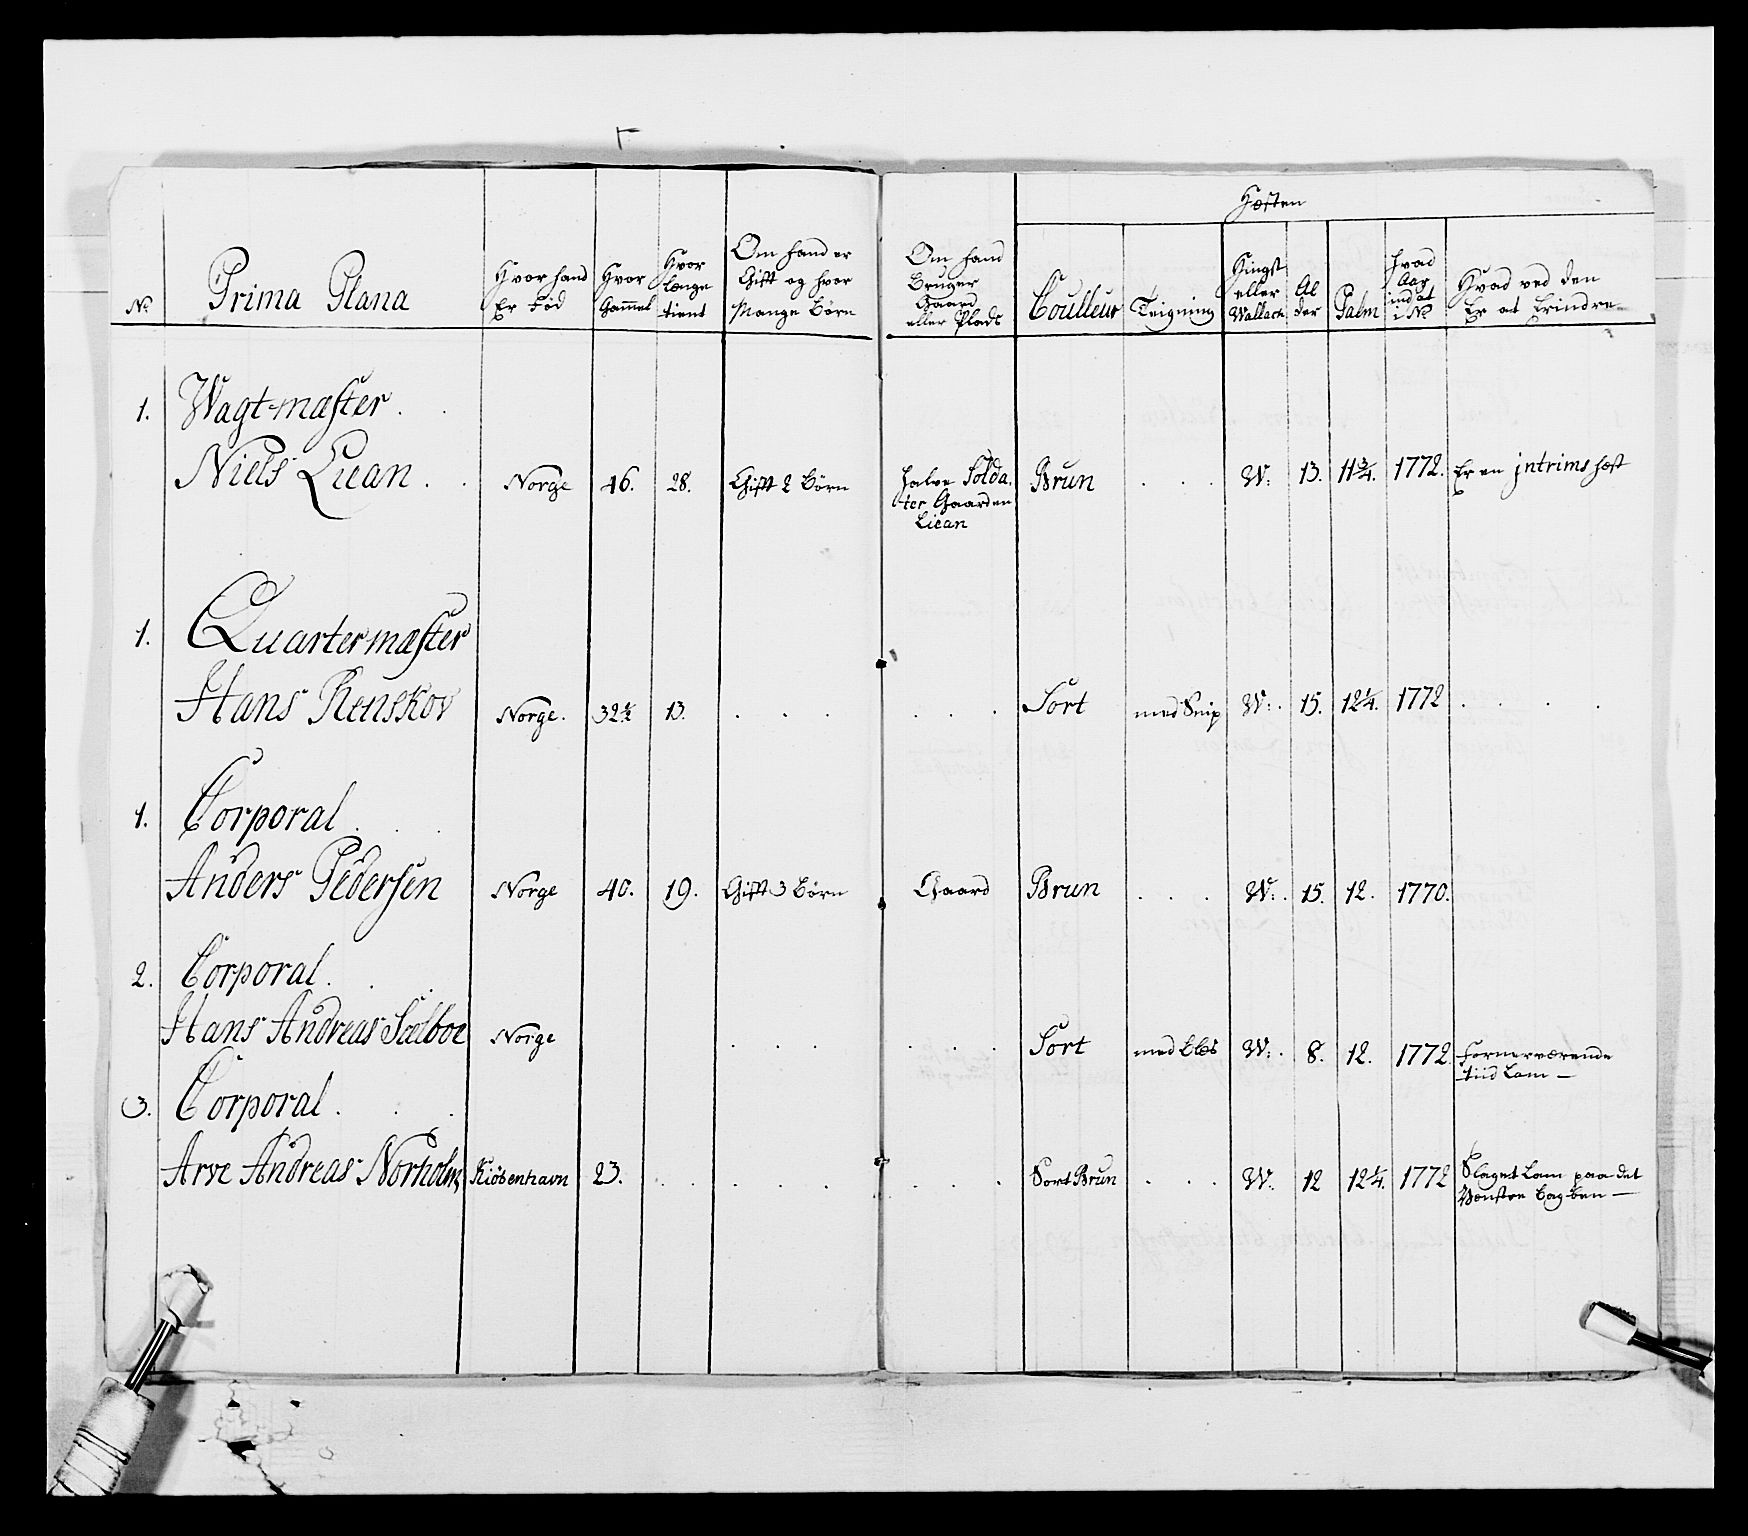 Hesten
No
Prima Plana
Hvor hand
Er Fød
Hvor
Gammel
Hvor
længe
tient
Om hand er
Gift og hvor
Mange Børn
Om hand
Bruger
Gaard
eller Plads
Coulleur
Teigning
Hingst
eller
Wallach
Al
der
Palm
hvad
Aar
ind at
i No
Hvad ved den
Er at Erindre
1. Wagt-mæster . .
Niels Liean . . Norge 46. 28. Gift 2 Børn halve Solda, Brun . . . W: 13. 11¾. 1772. Er en jntrims hæst
ter Gaarden
Liean
1. Quartermæster
Hans Renskov Norge. 32½ 13. . . . . . . Sort med Snip W: . 15. 12¼. 1772 . . . .
1. Corporal . . .
Anders Pedersen Norge 40. 19. Gift 3 Børn Gaard Brun . . . W: . 15. 12. 1770.
2. Corporal . . .
Hans Andreas Sælboe Norge . . . . . . Sort med bles W: . 8. 12. 1772. Fornerværende
tiid Lam —
3. Corporal . . .
Arve Andreas Norholm Kiøbenhavn 23. . . . . . . . . Sort Brun . . . W: 12 12¼. 1772 Slaget Lam paa det
Venstre bag-been —